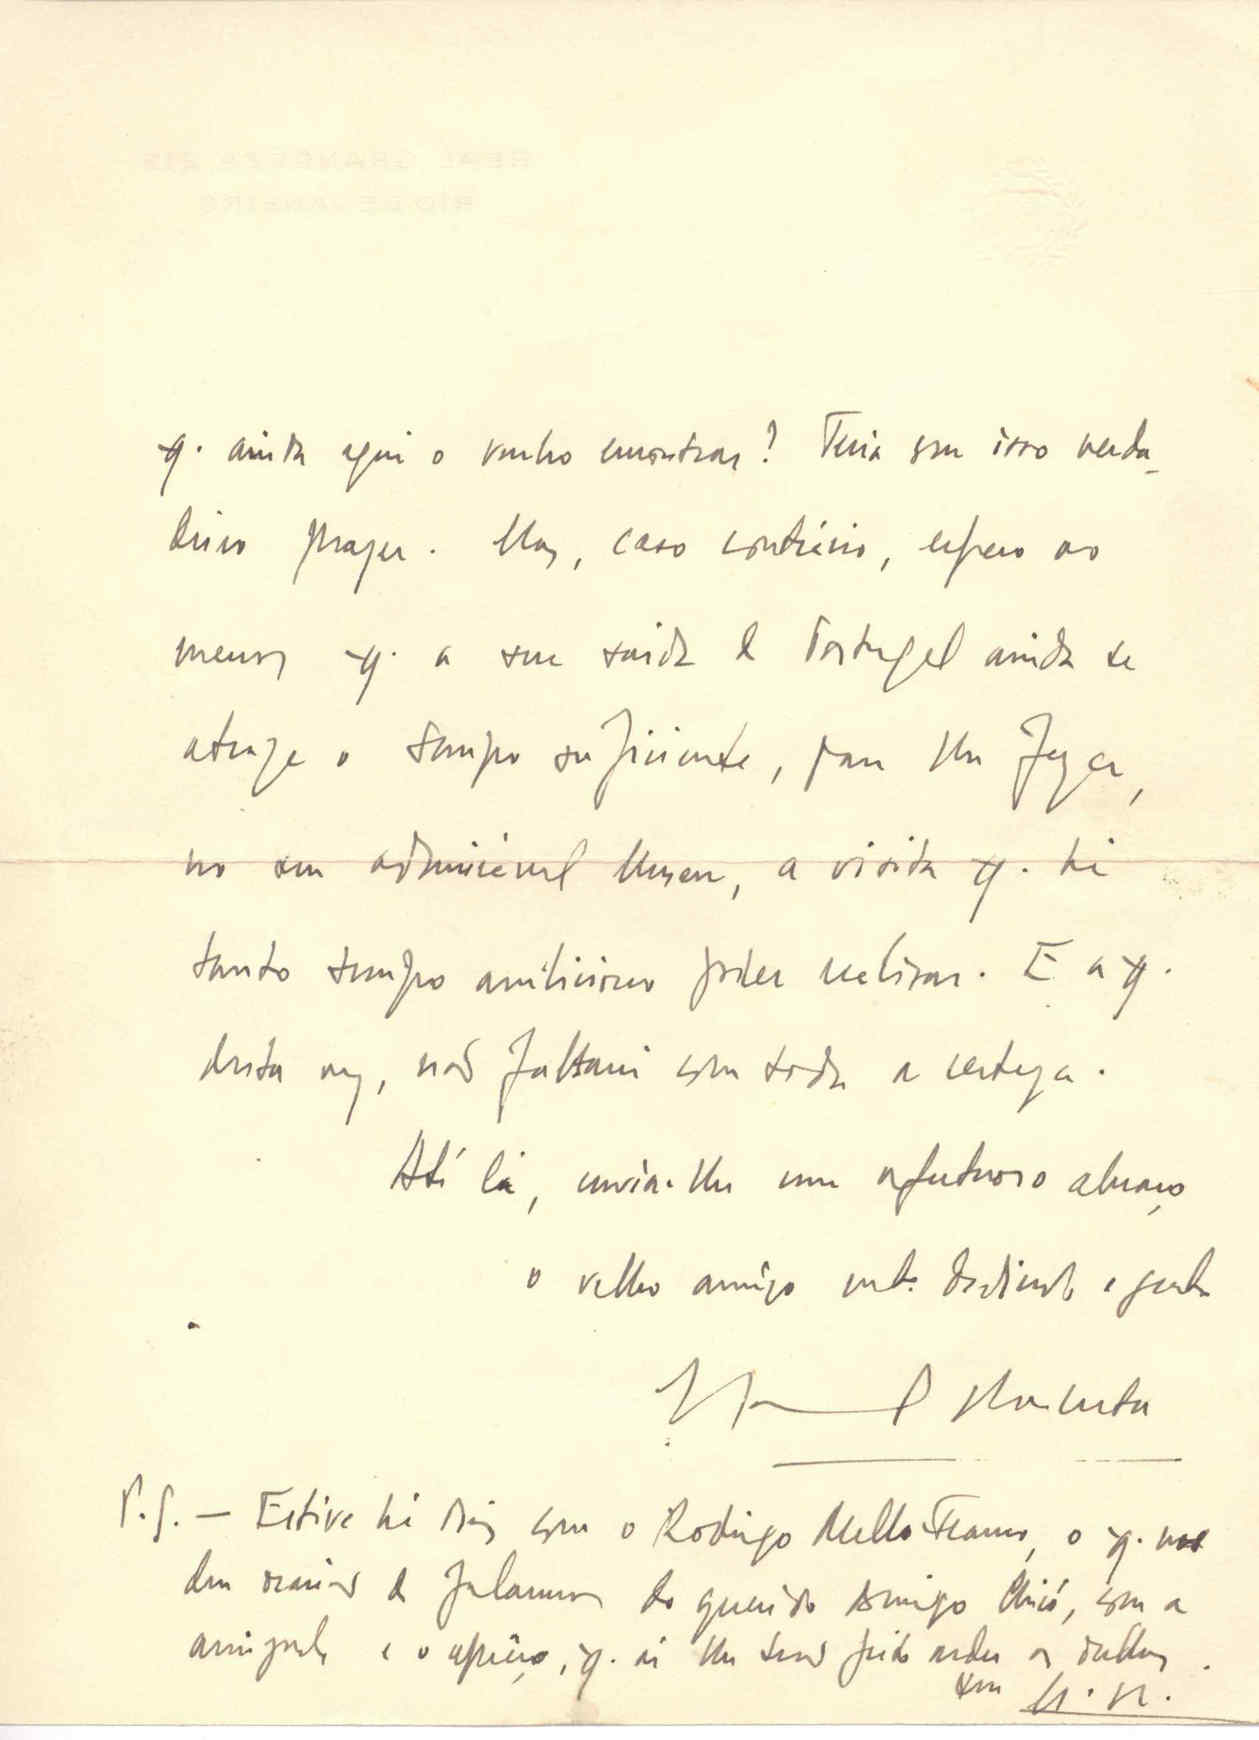 REAL GRANDEZA 219
RIO DE JANEIRO
q. ainda aqui o venha encontrar? Teria com isso verda-
deiro prazer. Mas, caso contrário, espero ao
menos q. a sua saida de Portugal ainda se
atraze o tempo suficiente, para lhe fazer,
no seu admirável Museu, a visita q. há
tanto tempo ambiciono poder realizar. E a q.
desta vez, não faltarei com toda a certeza.
Até lá, envia-lhe um afectuoso abraço
o velho amigo mto. dedicado e grato
P.S. — Estive há dias com o Rodrigo Mello Franco, o q. nos
deu ocasião de falarmos do querido Amigo Chicó, com a
amizade e o aprêço, q. ai lhe tem os
seu